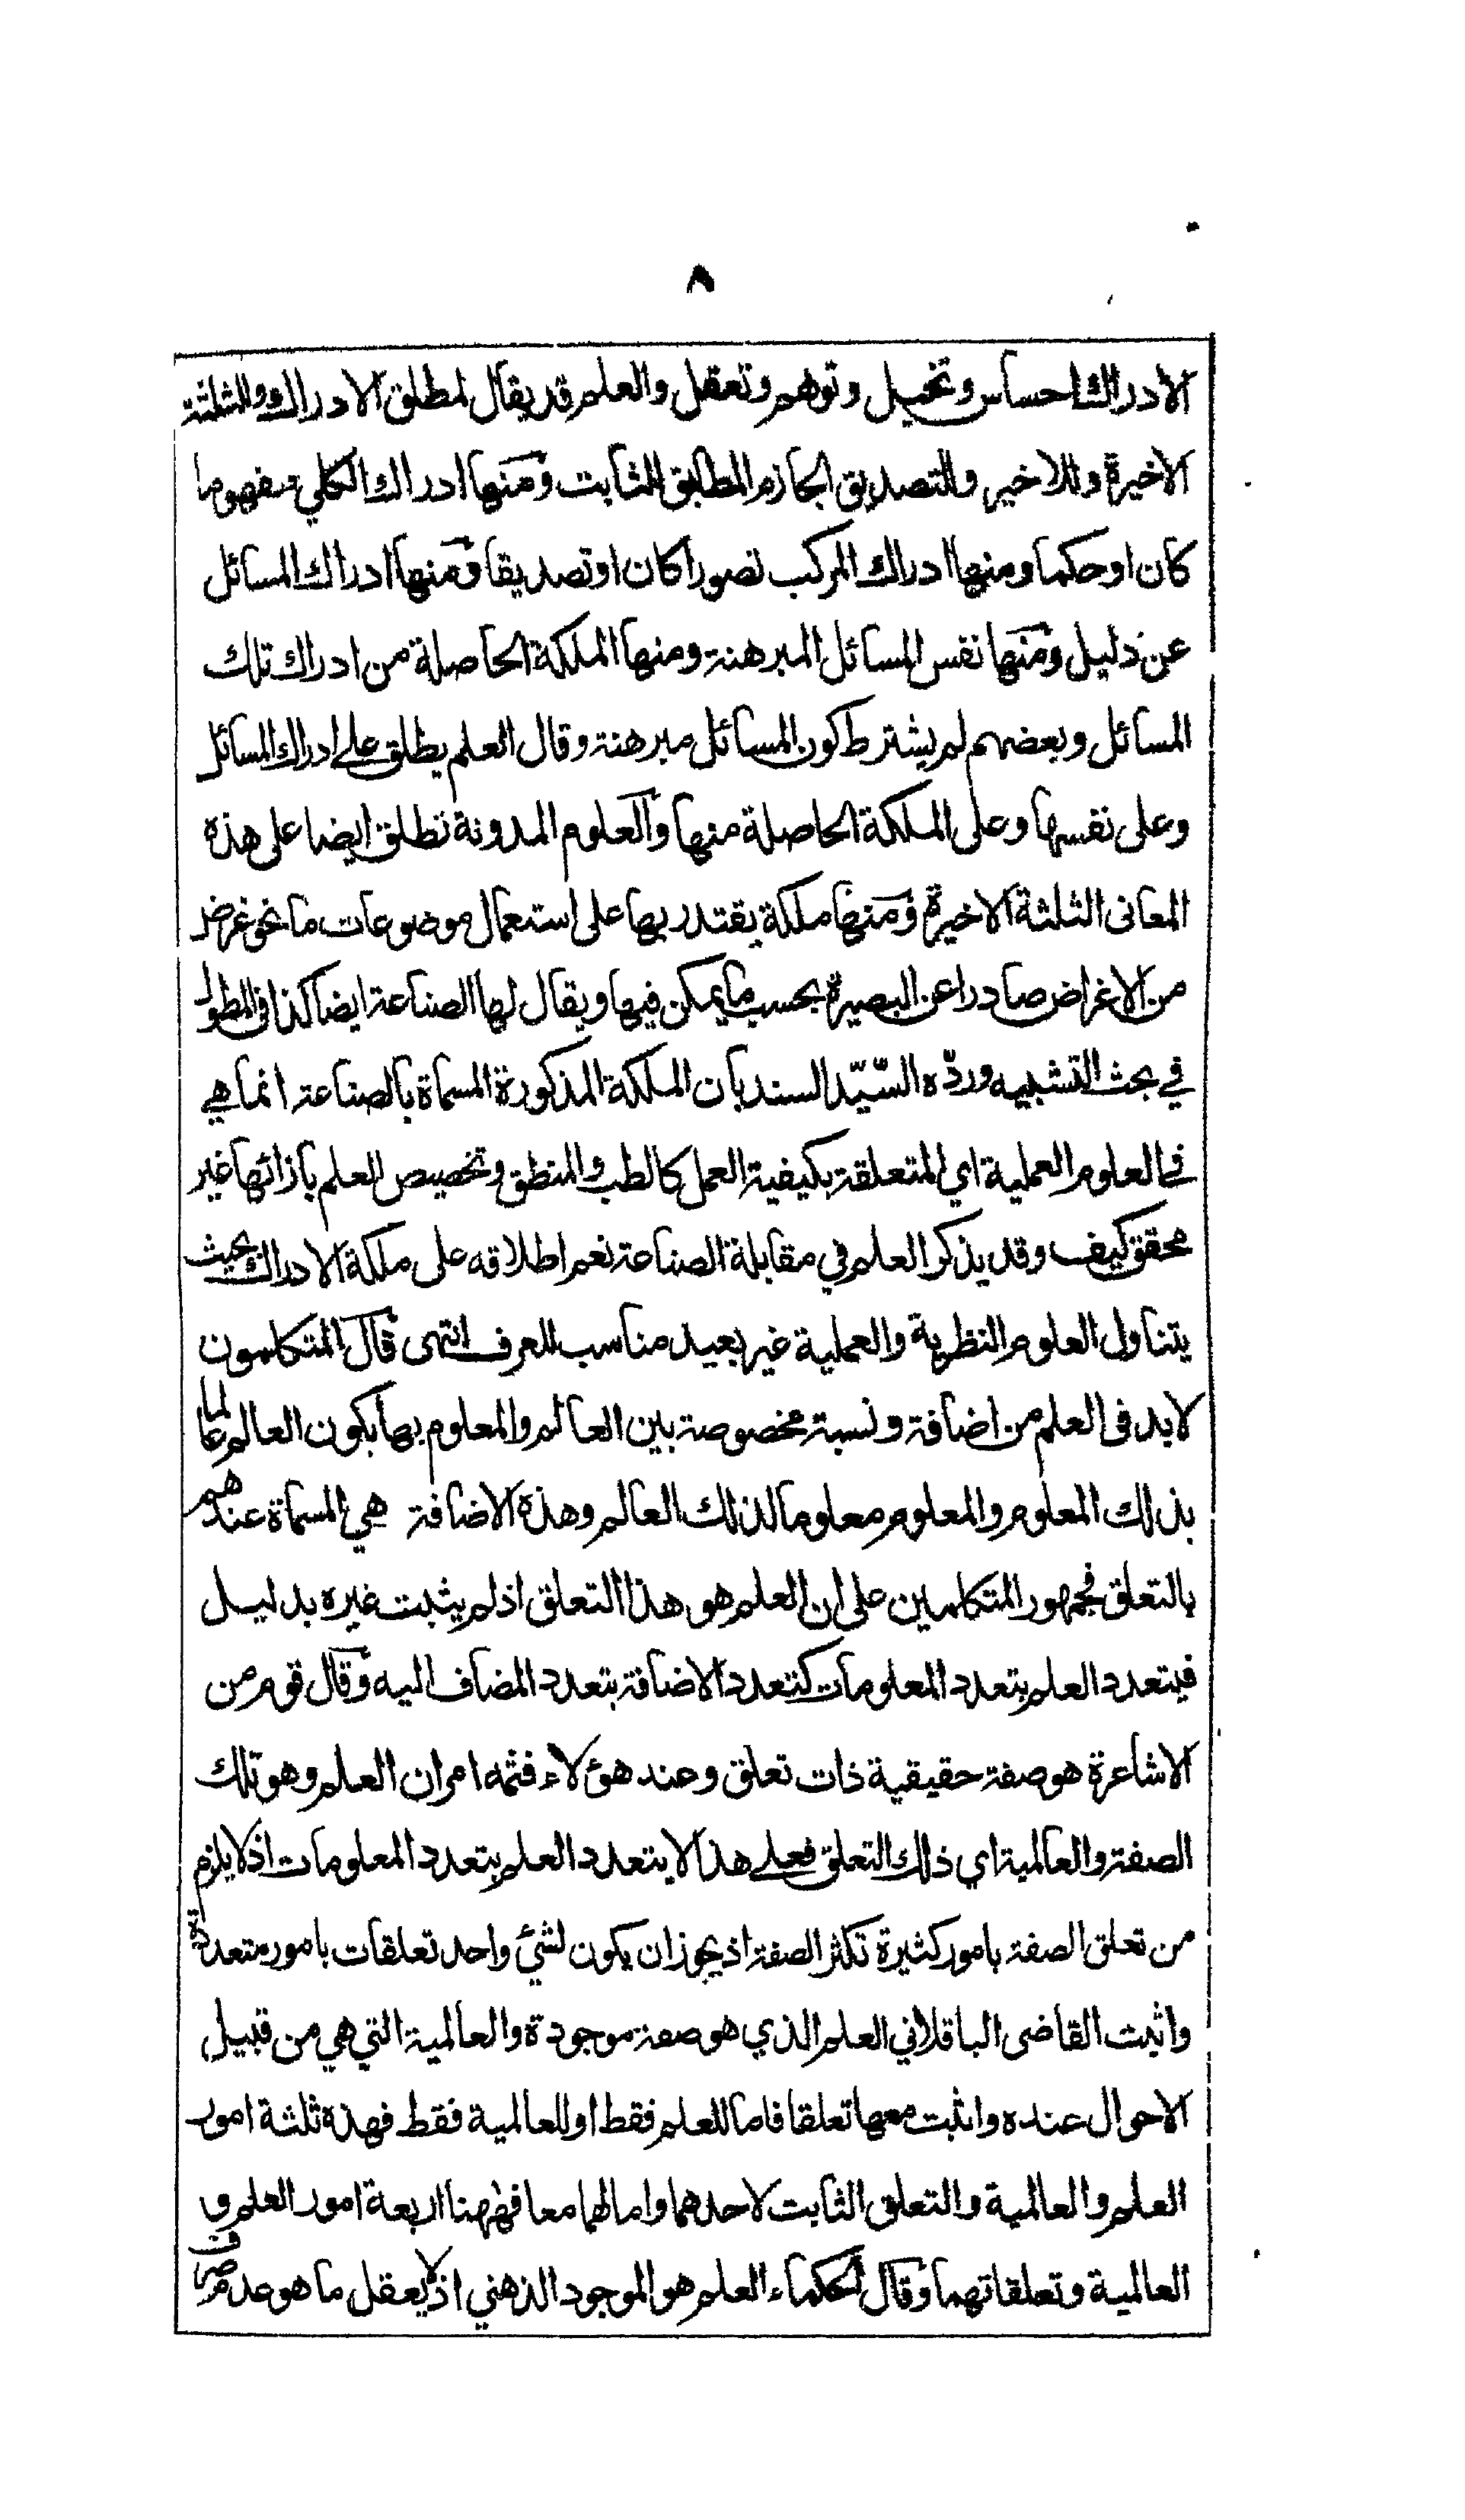 ٨
الادراك احساس وتخييل وتوهم وتعقل والعلم قد يقال لمطلق الادراك وللثلثة
الاخيرة وللاخير وللتصديق الجازم المطابق الثابت ومنها ادراك الكلي مفهوما
كان او حكما ومنها ادراك المركب تصورا كان او تصديقا ومنها ادراك المسائل
عن دليل ومنها نفس المسائل المبرهنة ومنها الملكة الحاصلة من ادراك تلك
المسائل وبعضهم لم يشترط كون المسائل مبرهنة وقال العلم يطلق على ادراك المسائل
وعلى نفسها وعلى الملكة الحاصلة منها والعلوم المدونة تطلق ايضا على هذه
المعانى الثلثة الاخيرة ومنها ملكة يقتدر بها على استعمال موضوعات ما نحو غرض
من الاغراض صادرا عن البصيرة بحسب ما يمكن فيها ويقال لها الصناعة ايضا كذا في المطول
في بحث التشبيه وردّه السّيّد السند بان الملكة المذكورة المسماة بالصناعة انما هي
في العلوم العملية اي المتعلقة بكيفية العمل كالطب والمنطق وتخصيص العلم بازائها غير
محقق كيف وقد يذكر العلم في مقابلة الصناعة نعم اطلاقه على ملكة الادراك بحيث
يتناول العلوم النظرية والعملية غير بعيد مناسب للعرف انتهى قال المتكلمون
لا بد فى العلم من اضافة ونسبة مخصوصة بين العالم والمعلوم بها يكون العالم عالما
بذلك المعلوم والمعلوم معلوما لذلك العالم وهذه الاضافة هي المسماة عندهم
بالتعلق فجمهور المتكلمين على ان العلم هو هذا التعلق اذ لم يثبت غيره بدليل
فيتعدد العلم بتعدد المعلومات كتعدد الاضافة بتعدد المضاف اليه وقال قوم من
الاشاعرة هو صفة حقيقية ذات تعلق وعند هؤلاء فثمه امران العلم وهو تلك
الصفة والعالمية اي ذلك التعلق فعلى هذا لا يتعدد العلم بتعدد المعلومات اذ لا يلزم
من تعلق الصفة بامور كثيرة تكثر الصفة اذ يجوز ان يكون لشئ واحد تعلقات بامور متعددة
واثبت القاضى الباقلاني العلم الذي هو صفة موجودة والعالمية التي هي من قبيل
الاحوال عنده واثبت معها تعلقا فاما للعلم فقط او للعالمية فقط فهذه ثلثة امور
العلم والعالمية والتعلق الثابت لاحدهما واما لهما معا فههنا اربعة امور العلم و
العالمية وتعلقاتهما وقال الحكماء العلم هو الموجود الذهني اذ لا يعقل ما هو عدم صرف